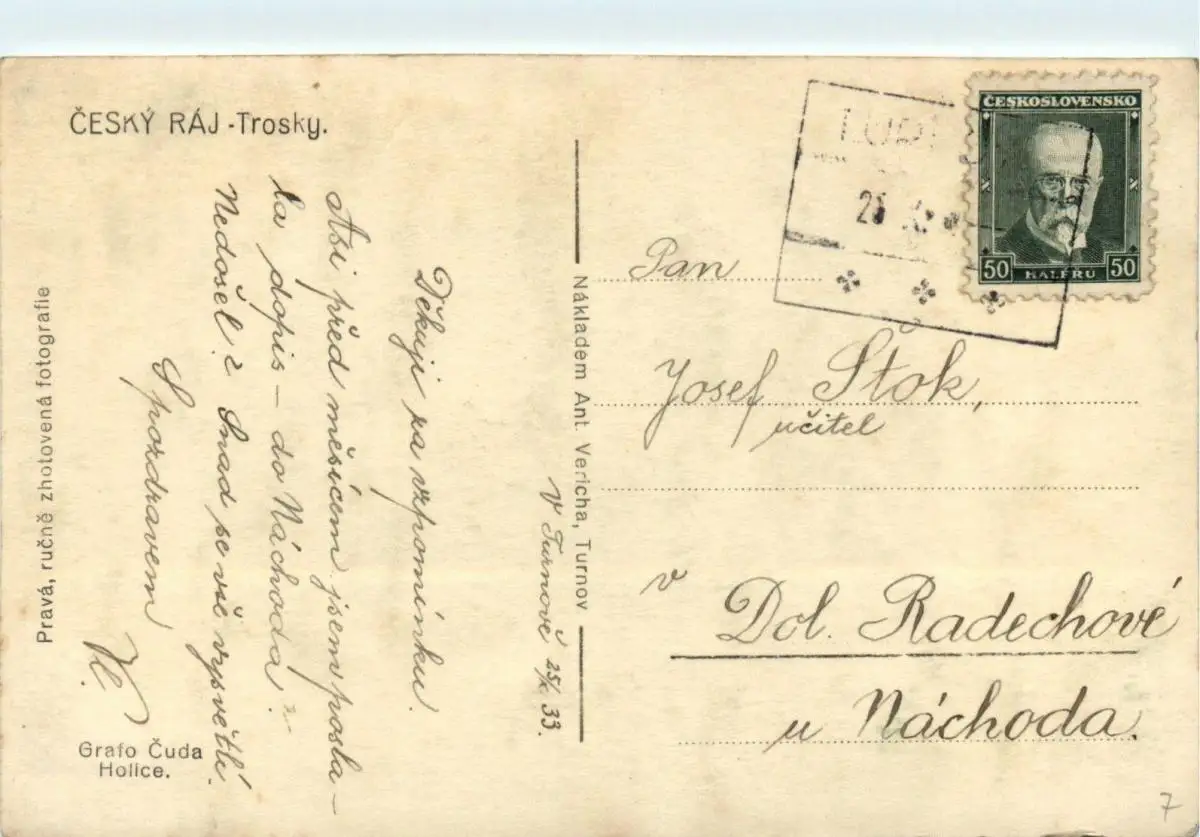 ČESKÝ RÁJ - Trosky.
V Turnově 25/X 33.
Děkuji za vzpomínku.
Asi před měsícem jsem posla-
la dopis – do Náchoda.
Nedošel? Snad se vše vysvětlí!
S pozdravem
Pravá, ručně zhotovená fotografie
Grafo Čuda
Holice.
Nákladem Ant. Vericha, Turnov
ČESKOSLOVENSKO
50 HALÉRU 50
Pan
Josef Štok,
učitel
v
Dol. Radechové
u Náchoda.
7